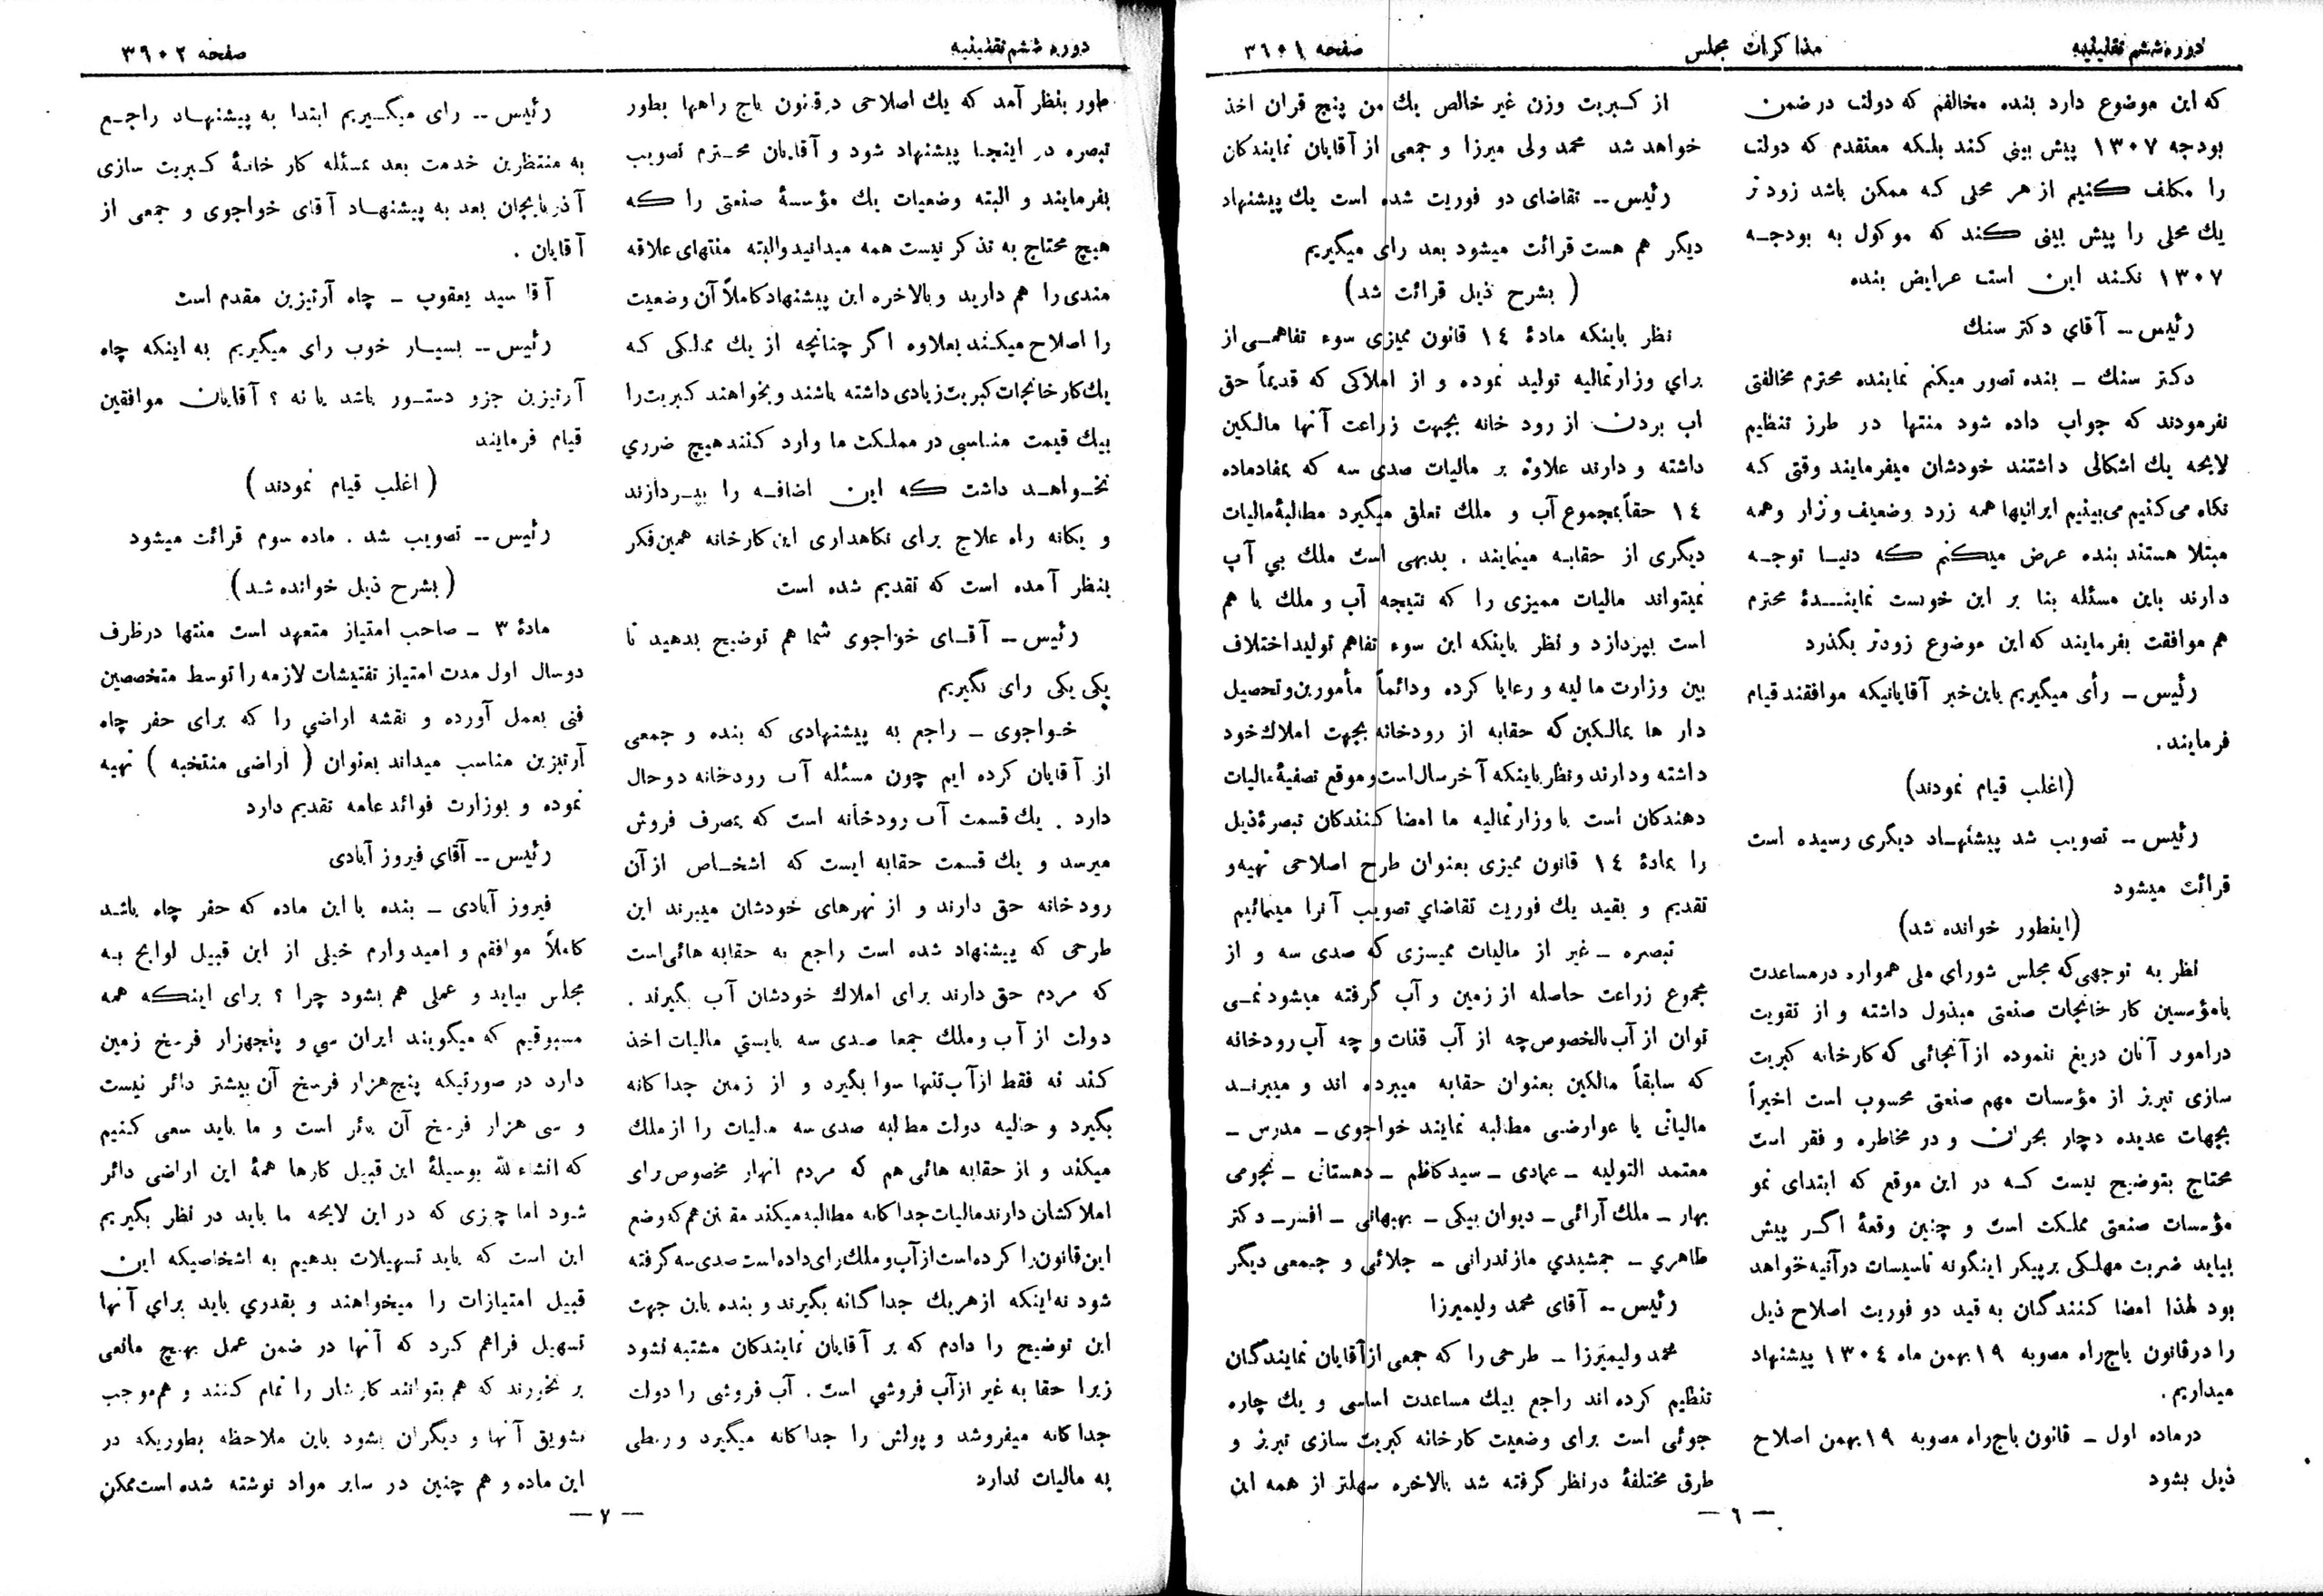 دوره ششم تقنینیه
مذاکرات مجلس
صفحه ۳۶۰۱
که این موضوع دارد بنده مخالفم که دولت در ضمن
بودجه ۱۳۰۷ پیش بینی کند بلکه معتقدم که دولت
را مکلف کنیم از هر محلی که ممکن باشد زودتر
یك محلی را پیش بینی کند که موکول به بودجه
۱۳۰۷ نکند این است عرایض بنده
رئیس ـ آقاي دکتر سنك
دکتر سنك ـ بنده تصور میکنم نماینده محترم مخالفتی
نفرمودند که جواب داده شود منتها در طرز تنظیم
لایحه یك اشکالی داشتند خودشان میفرمایند وقتی که
نکاه می‌کنیم می‌بینیم ایرانیها همه زرد وضعیف و زار وهمه
مبتلا هستند بنده عرض میکنم که دنیا توجه
دارند باین مسئله بنا بر این خوست نمایندۀ محترم
هم موافقت بفرمایند که این موضوع زودتر بگذرد
رئیس ـ رأی میگیریم باین خبر آقایانیکه موافقند قیام
فرمایند.
(اغلب قیام نمودند)
رئیس ـ تصویب شد پیشنهاد دیگری رسیده است
قرائت میشود
(اینطور خوانده شد)
نظر به توجهی که مجلس شورای ملی همواره در مساعدت
بامؤسسین کارخانجات صنعتی مبذول داشته و از تقویت
در امور آنان دریغ ننموده از آنجائی که کارخانه کبریت
سازی تبریز از مؤسسات مهم صنعتی محسوب است اخیراً
بجهات عدیده دچار بحران و در مخاطره و فقر است
محتاج بتوضیح نیست که در این موقع که ابتدای نمو
مؤسسات صنعتی مملکت است و چنین وقعۀ اگر پیش
بیاید ضربت مهلکی بر پیکر اینگونه تاسیسات در آتیه خواهد
بود لهذا امضا کنندگان به قید دو فوریت اصلاح ذیل
را در قانون باج‌راه مصوبه ۱۹ بهمن ماه ۱۳۰۴ پیشنهاد
میداریم.
در ماده اول ـ قانون باج‌راه مصوبه ۱۹ بهمن اصلاح
ذیل بشود
از کبریت وزن غیر خالص یك من پنج قران اخذ
خواهد شد محمد ولی میرزا و جمعی از آقایان نمایندکان
رئیس ـ تقاضای دو فوریت شده است یك پیشنهاد
دیگر هم هست قرائت میشود بعد رای میگیریم
( بشرح ذیل قرائت شد)
نظر باینکه مادۀ ۱۴ قانون ممیزی سوء تفاهمی از
براي وزارتمالیه تولید نموده و از املاکی که قدیماً حق
اب بردن از رود خانه بجهت زراعت آنها مالکین
داشته و دارند علاوه بر مالیات صدی سه که بمفاد ماده
۱۴ حقاً بمجموع آب و ملك تعلق میگیرد مطالبۀ مالیات
دیگری از حقابه مینمایند . بدیهی است ملك بي آب
نمیتواند مالیات ممیزی را که نتیجه آب و ملك با هم
است بپردازد و نظر باینکه این سوء تفاهم تولید اختلاف
بین وزارت مالیه و رعایا کرده ودائماً مأمورین و تحصیل
دار ها بمالکین که حقابه از رودخانه بجهت املاك خود
داشته و دارند ونظر باینکه آخر سال است و موقع تصفیۀ مالیات
دهندکان است با وزارتمالیه ما امضا کنندکان تبصرۀ ذیل
را بمادۀ ۱۴ قانون ممیزی بعنوان طرح اصلاحی تهیه و
تقدیم و بقید یك فوریت تقاضاي تصویب آنرا مینمائیم
تبصره ـ غیر از مالیات ممیزی که صدی سه و از
مجموع زراعت حاصله از زمین و آب گرفته میشود نمی
توان از آب بالخصوص چه از آب قنات و چه آب رودخانه
که سابقاً مالکین بعنوان حقابه میبرده اند و میبرند
مالیاتی یا عوارضی مطالبه نمایند خواجوی ـ مدرس ـ
معتمد التولیه ـ عمادی ـ سیدکاظم ـ دهستانی ـ نجومی
بهار ـ ملك آرائی ـ دیوان بیکی ـ بهبهانی ـ افسر ـ دکتر
طاهري ـ جمشیدي مازندرانی ـ جلائی و جمعی دیگر
رئیس ـ آقای محمد ولیمیرزا
محمد ولیمیرزا ـ طرحی را که جمعی از آقایان نمایندگان
تنظیم کرده اند راجع بیك مساعدت اساسی و یك چاره
جوئی است برای وضعیت کارخانه کبریت سازی تبریز و
طرق مختلفۀ در نظر گرفته شد بالاخره سهلتر از همه این
— ۶ —
دوره ششم تقنینیه
صفحه ۳۹۰۲
طور بنظر آمد که یك اصلاحی در قانون باج راهها بطور
تبصره در اینجا پیشنهاد شود و آقایان محترم تصویب
بفرمایند و البته وضعیات یك مؤسسۀ صنعتی را که
هیچ محتاج به تذکر نیست همه میدانید والبته منتهای علاقه
مندی را هم دارید و بالاخره این پیشنهاد کاملاً آن وضعیت
را اصلاح میکند بعلاوه اگر چنانچه از یك مملکی که
یك کارخانجات کبریت زیادی داشته باشند و بخواهند کبریت را
بیك قیمت مناسبی در مملکت ما وارد کنند هیچ ضرري
نخواهد داشت که این اضافه را بپردازند
و یکانه راه علاج برای نکاهداری این کارخانه همین فکر
بنظر آمده است که تقدیم شده است
رئیس ـ آقای خواجوی شما هم توضیح بدهید تا
یکی یکی رای بگیریم
خواجوی ـ راجع به پیشنهادی که بنده و جمعی
از آقایان کرده ایم چون مسئله آب رودخانه دو حال
دارد . یك قسمت آب رودخانه است که بمصرف فروش
میرسد و یك قسمت حقابه ایست که اشخاص از آن
رودخانه حق دارند و از نهرهای خودشان میبرند این
طرحی که پیشنهاد شده است راجع به حقابه هائی است
که مردم حق دارند برای املاك خودشان آب بگیرند .
دولت از آب و ملك جمعا صدی سه بایستي مالیات اخذ
کند نه فقط از آب تنها سوا بگیرد و از زمین جداکانه
بگیرد و حالیه دولت مطالبه صدی سه مالیات را از ملك
میکند و از حقابه هائی هم که مردم انهار مخصوص برای
املاکشان دارند مالیات جداکانه مطالبه میکند مقنن هم که وضع
این قانون را کرده است از آب و ملك رای داده است صدی سه گرفته
شود نه اینکه از هر یك جداگانه بگیرند و بنده باین جهت
این توضیح را دادم که بر آقایان نمایندکان مشتبه نشود
زیرا حقا به غیر از آب فروشي است . آب فروشی را دولت
جداکانه میفروشد و پولش را جداکانه میگیرد و ربطی
به مالیات ندارد
رئیس ـ رای میگیریم ابتدا به پیشنهاد راجع
به منتظرین خدمت بعد بمسئله کار خانۀ کبریت سازی
آذربایجان بعد به پیشنهاد آقای خواجوی و جمعی از
آقایان .
آقا سید یعقوب ـ چاه آرتیزین مقدم است
رئیس ـ بسیار خوب رای میگیریم به اینکه چاه
آرتیزین جزو دستور باشد یا نه ؟ آقایان موافقین
قیام فرمایند
( اغلب قیام نمودند )
رئیس ـ تصویب شد . ماده سوم قرائت میشود
( بشرح ذیل خوانده شد)
مادۀ ۳ ـ صاحب امتیاز متعهد است منتها در ظرف
دوسال اول مدت امتیاز تفتیشات لازمه را توسط متخصصین
فنی بعمل آورده و نقشه اراضي را که برای حفر چاه
آرتیزین مناسب میداند بعنوان ( اراضی منتخبه ) تهیه
نموده و بوزارت فوائد عامه تقدیم دارد
رئیس ـ آقاي فیروز آبادی
فیروز آبادی ـ بنده با این ماده که حفر چاه باشد
کاملاً موافقم و امیدوارم خیلی از این قبیل لوایح به
مجلس بیاید و عملی هم بشود چرا ؟ برای اینکه همه
مسبوقیم که میگویند ایران سي و پنجهزار فرسخ زمین
دارد در صورتیکه پنج هزار فرسخ آن بیشتر دائر نیست
و سی هزار فرسخ آن بائر است و ما باید سعی کنیم
که انشاءلله بوسیلۀ این قبیل کارها همۀ این اراضی دائر
شود اما چیزی که در این لایحه ما باید در نظر بگیریم
این است که باید تسهیلات بدهیم به اشخاصیکه این
قبیل امتیازات را میخواهند و بقدري باید برای آنها
تسهیل فراهم کرد که آنها در ضمن عمل بهیچ مانعی
بر نخورند که هم بتوانند کارشان را تمام کنند و هم موجب
تشویق آنها و دیگران بشود باین ملاحظه بطوریکه در
این ماده و هم چنین در سایر مواد نوشته شده است ممکن
— ۷ —